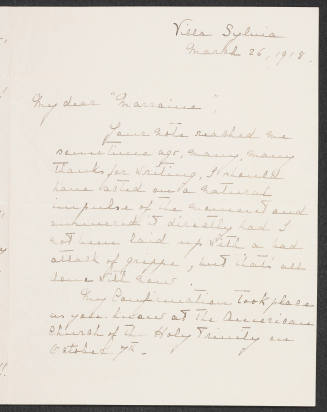 Villa Sylvia
March 26, 1918.
My dear "Marraine",
Your note reached me
sometime ago, many, many
thanks for writing, I should
have acted on a natural
impulse of the moment and
answered it directly had I
not been laid up with a bad
attack of grippe, but that's all
done with now.
My Confirmation took place
as you know at the American
Church of the Holy Trinity on
October 7th.